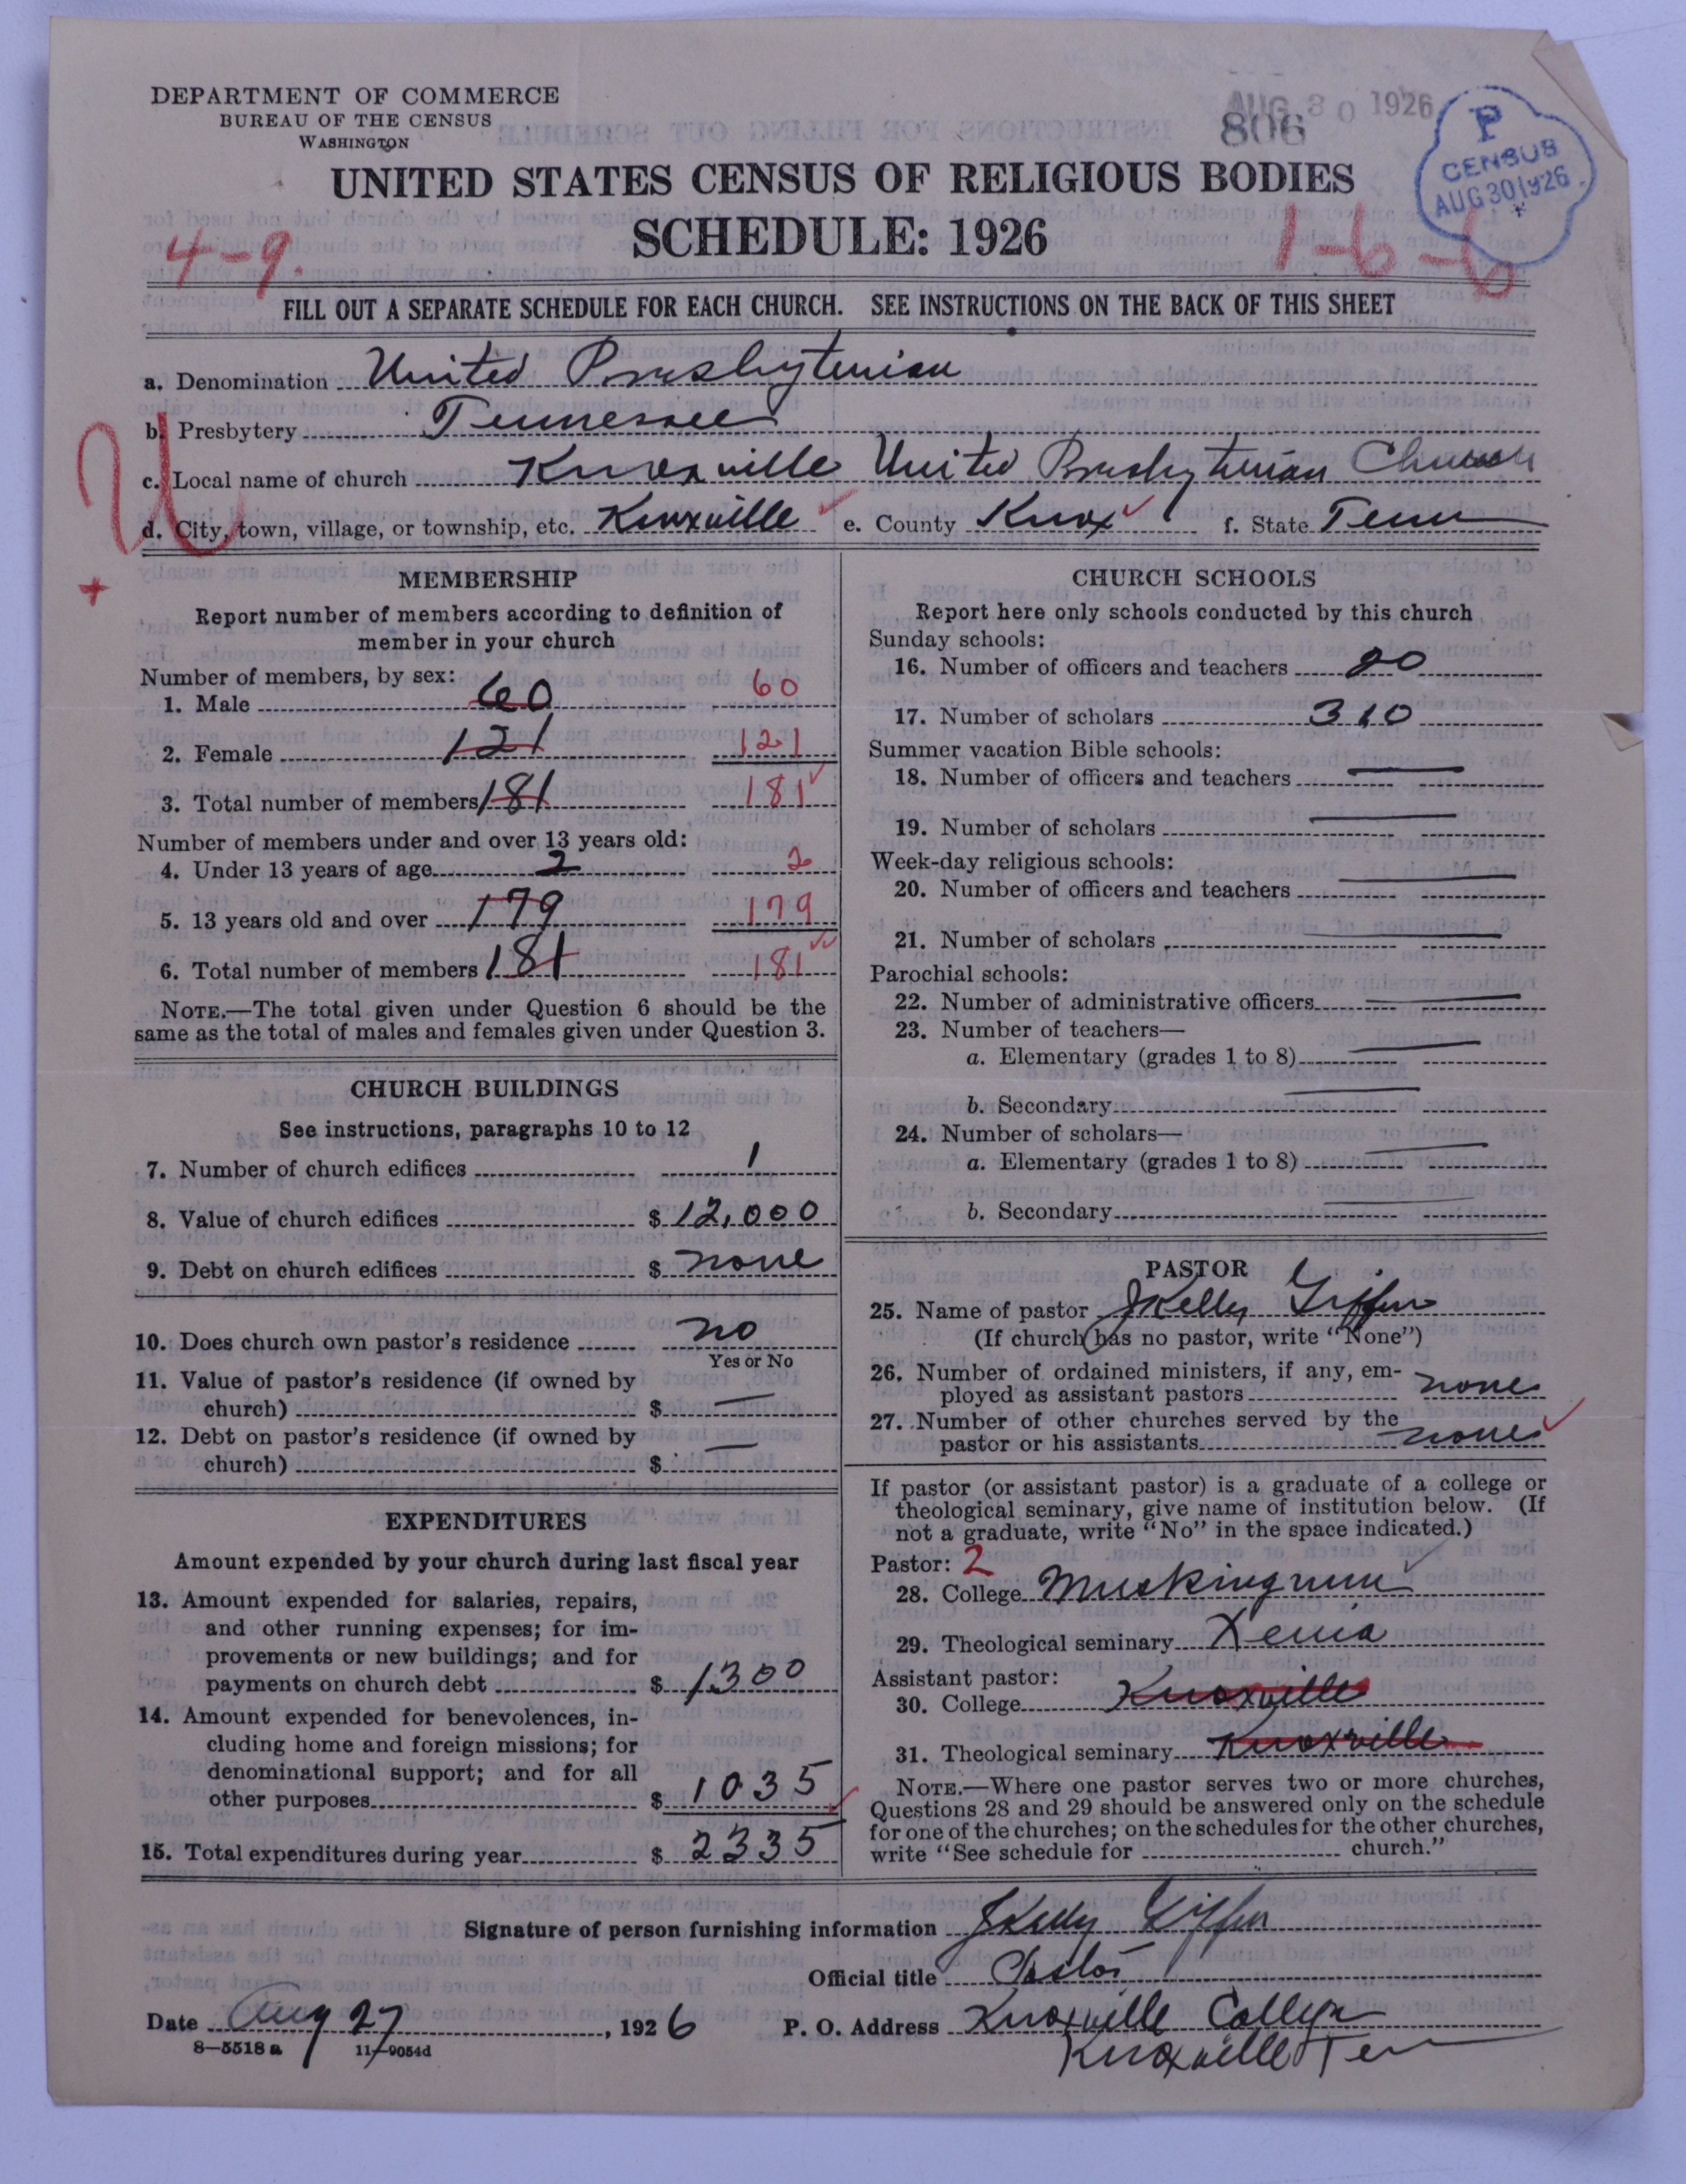 DEPARTMENT OF COMMERCE
BUREAU OF THE CENSUS
WASHINGTON
AUG 30 1926
806
P
CENSUS
AUG 30 1926
UNITED STATES CENSUS OF RELIGIOUS BODIES
SCHEDULE: 1926
4-9.
1-6-6
FILL OUT A SEPARATE SCHEDULE FOR EACH CHURCH. SEE INSTRUCTIONS ON THE BACK OF THIS SHEET
a. Denomination United Presbyterian
b. Presbytery Tennessee
c. Local name of church Knoxville United Presbyterian Church
d. City, town, village, or township, etc. Knoxville e. County Knox f. State Tenn
U
+
MEMBERSHIP
Report number of members according to definition of
member in your church
Number of members, by sex:
1. Male 60 60
2. Female 121 121
3. Total number of members 181 181
Number of members under and over 13 years old:
4. Under 13 years of age 2 2
5. 13 years old and over 179 179
6. Total number of members 181 181
NOTE.—The total given under Question 6 should be the
same as the total of males and females given under Question 3.
CHURCH BUILDINGS
See instructions, paragraphs 10 to 12
7. Number of church edifices 1
8. Value of church edifices $ 12,000
9. Debt on church edifices $ none
10. Does church own pastor's residence no
Yes or No
11. Value of pastor's residence (if owned by
church) $ —
12. Debt on pastor's residence (if owned by
church) $ —
EXPENDITURES
Amount expended by your church during last fiscal year
13. Amount expended for salaries, repairs,
and other running expenses; for im-
provements or new buildings; and for
payments on church debt $ 1300
14. Amount expended for benevolences, in-
cluding home and foreign missions; for
denominational support; and for all
other purposes $ 1035
15. Total expenditures during year $ 2335
CHURCH SCHOOLS
Report here only schools conducted by this church
Sunday schools:
16. Number of officers and teachers 20
17. Number of scholars 310
Summer vacation Bible schools:
18. Number of officers and teachers —
19. Number of scholars —
Week-day religious schools:
20. Number of officers and teachers —
21. Number of scholars —
Parochial schools:
22. Number of administrative officers —
23. Number of teachers—
a. Elementary (grades 1 to 8) —
b. Secondary —
24. Number of scholars—
a. Elementary (grades 1 to 8) —
b. Secondary —
PASTOR
25. Name of pastor J Kelly Giffen
(If church has no pastor, write "None")
26. Number of ordained ministers, if any, em-
ployed as assistant pastors none
27. Number of other churches served by the
pastor or his assistants none
If pastor (or assistant pastor) is a graduate of a college or
theological seminary, give name of institution below. (If
not a graduate, write "No" in the space indicated.)
Pastor: 2
28. College Muskingum
29. Theological seminary Xenia
Assistant pastor:
30. College Knoxville
31. Theological seminary Knoxville
NOTE.—Where one pastor serves two or more churches,
Questions 28 and 29 should be answered only on the schedule
for one of the churches; on the schedules for the other churches,
write "See schedule for church."
Signature of person furnishing information J Kelly Giffen
Official title Pastor
Date Aug 27, 1926 P. O. Address Knoxville College
Knoxville Ten
8—5518 a 11—9054d